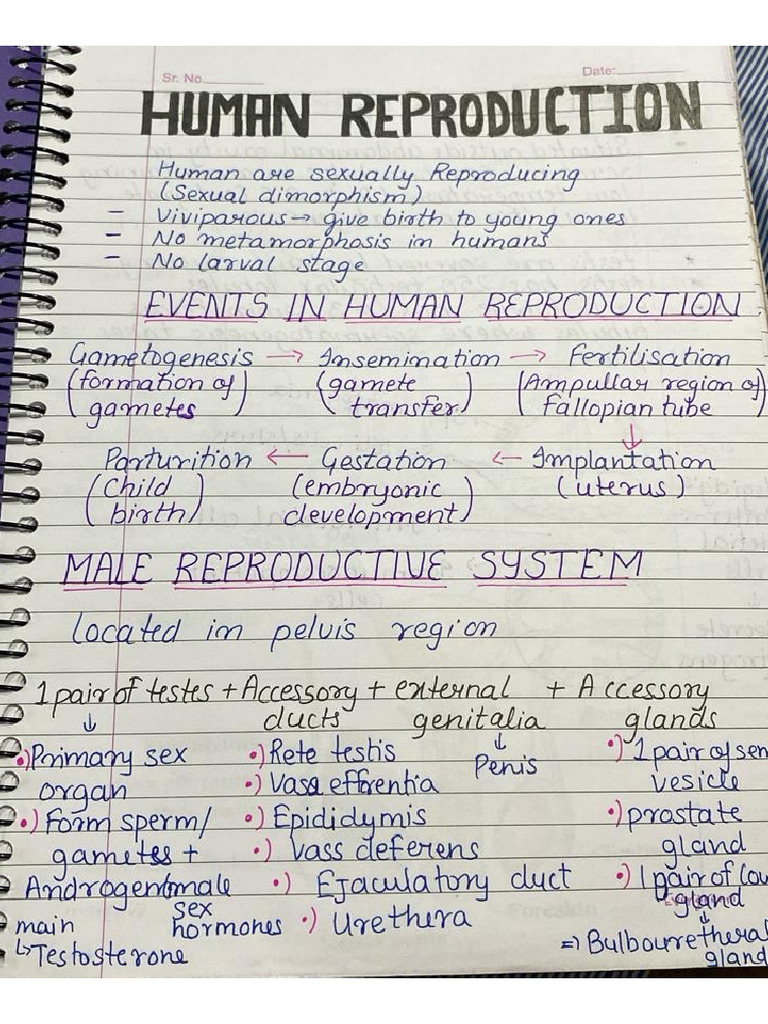 Sr. No.
Date:
HUMAN REPRODUCTION
Human are sexually Reproducing
(Sexual dimorphism)
- Viviparous → give birth to young ones
- No metamorphosis in humans
- No larval stage
EVENTS IN HUMAN REPRODUCTION
Gametogenesis → Insemination → Fertilisation
(formation of gametes) (gamete transfer) (Ampullar region of fallopian tube)
↓
Parturition ← Gestation ← Implantation
(Child birth) (embryonic development) (uterus)
MALE REPRODUCTIVE SYSTEM
located in pelvis region
1 pair of testes + Accessory ducts + external genitalia + Accessory glands
↓
•) Primary sex organ
•) Form sperm/ gametes +
Androgen (male sex hormones
main
↳ Testosterone
•) Rete testis
•) Vasa effrentia
•) Epididymis
•) Vass deferens
•) Ejaculatory duct
•) Urethera
↓
Penis
•) 1 pair of sem
vesicle
•) prostate
gland
•) 1 pair of cow
gland
↓
⇒ Bulbouretheral
gland